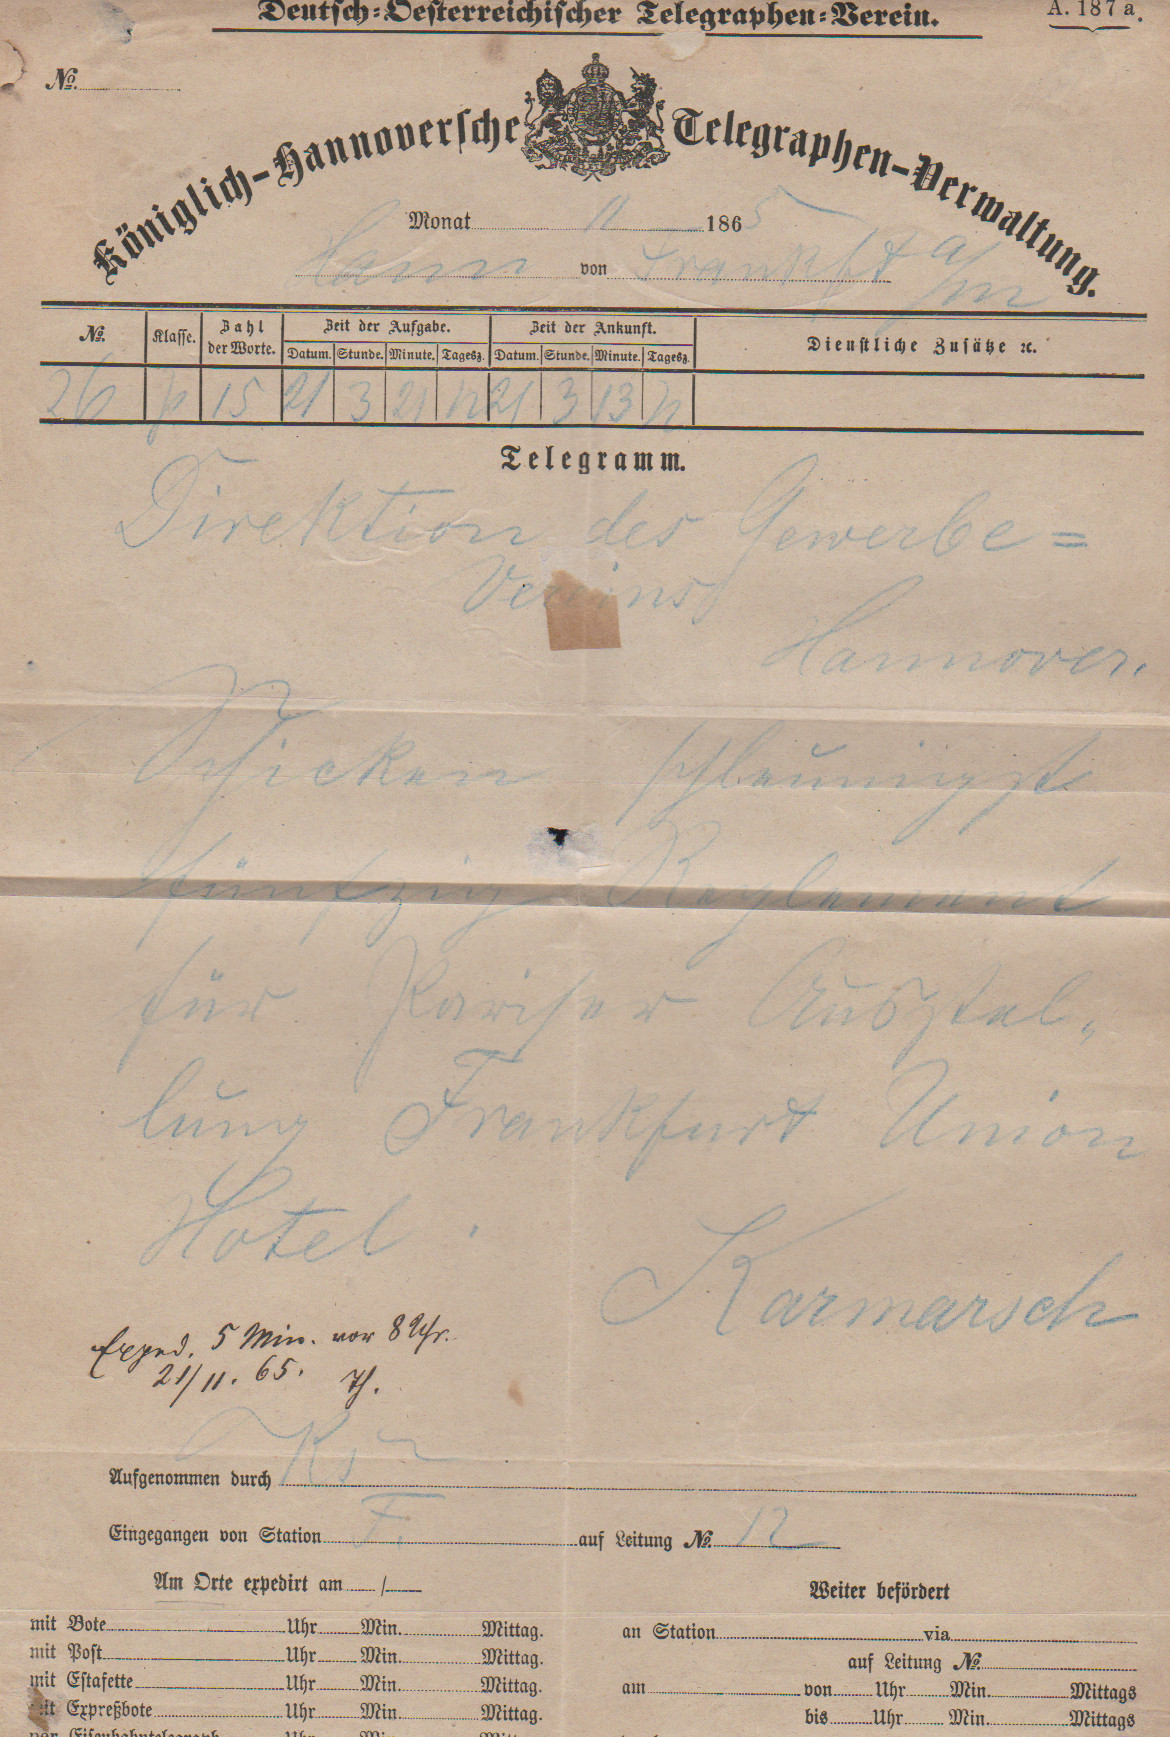 Deutsch-Oesterreichischer Telegraphen-Verein.
A. 187 a.
No.
Königlich-Hannoversche Telegraphen-Verwaltung.
Monat 11 1865
Hann von Frankft a/m
No. Klasse. Zahl der Worte. Zeit der Aufgabe. Zeit der Ankunft. Dienstliche Zusätze ꝛc.
Datum. Stunde. Minute. Tagesz. Datum. Stunde. Minute. Tagesz.
26 p 15 21 3 21 N 21 3 13 N
Telegramm.
Direktion des Gewerbe=
Vereins
Hannover.
Schicken schleunigst
fünfzig Reglement
für Pariser Ausstel„
lung Frankfurt Union
Hotel.
Karmarsch
Exped. 5 Min. vor 8 Uhr.
21/11. 65.
Aufgenommen durch
Eingegangen von Station F. auf Leitung No. 12
Am Orte expedirt am / Weiter befördert
mit Bote Uhr Min. Mittag. an Station via
mit Post Uhr Min. Mittag. auf Leitung No.
mit Estafette Uhr Min. Mittag. am von Uhr Min. Mittags
mit Expreßbote Uhr Min. Mittag. bis Uhr Min. Mittags
per Eisenbahntelegraph Uhr Min. Mittag.